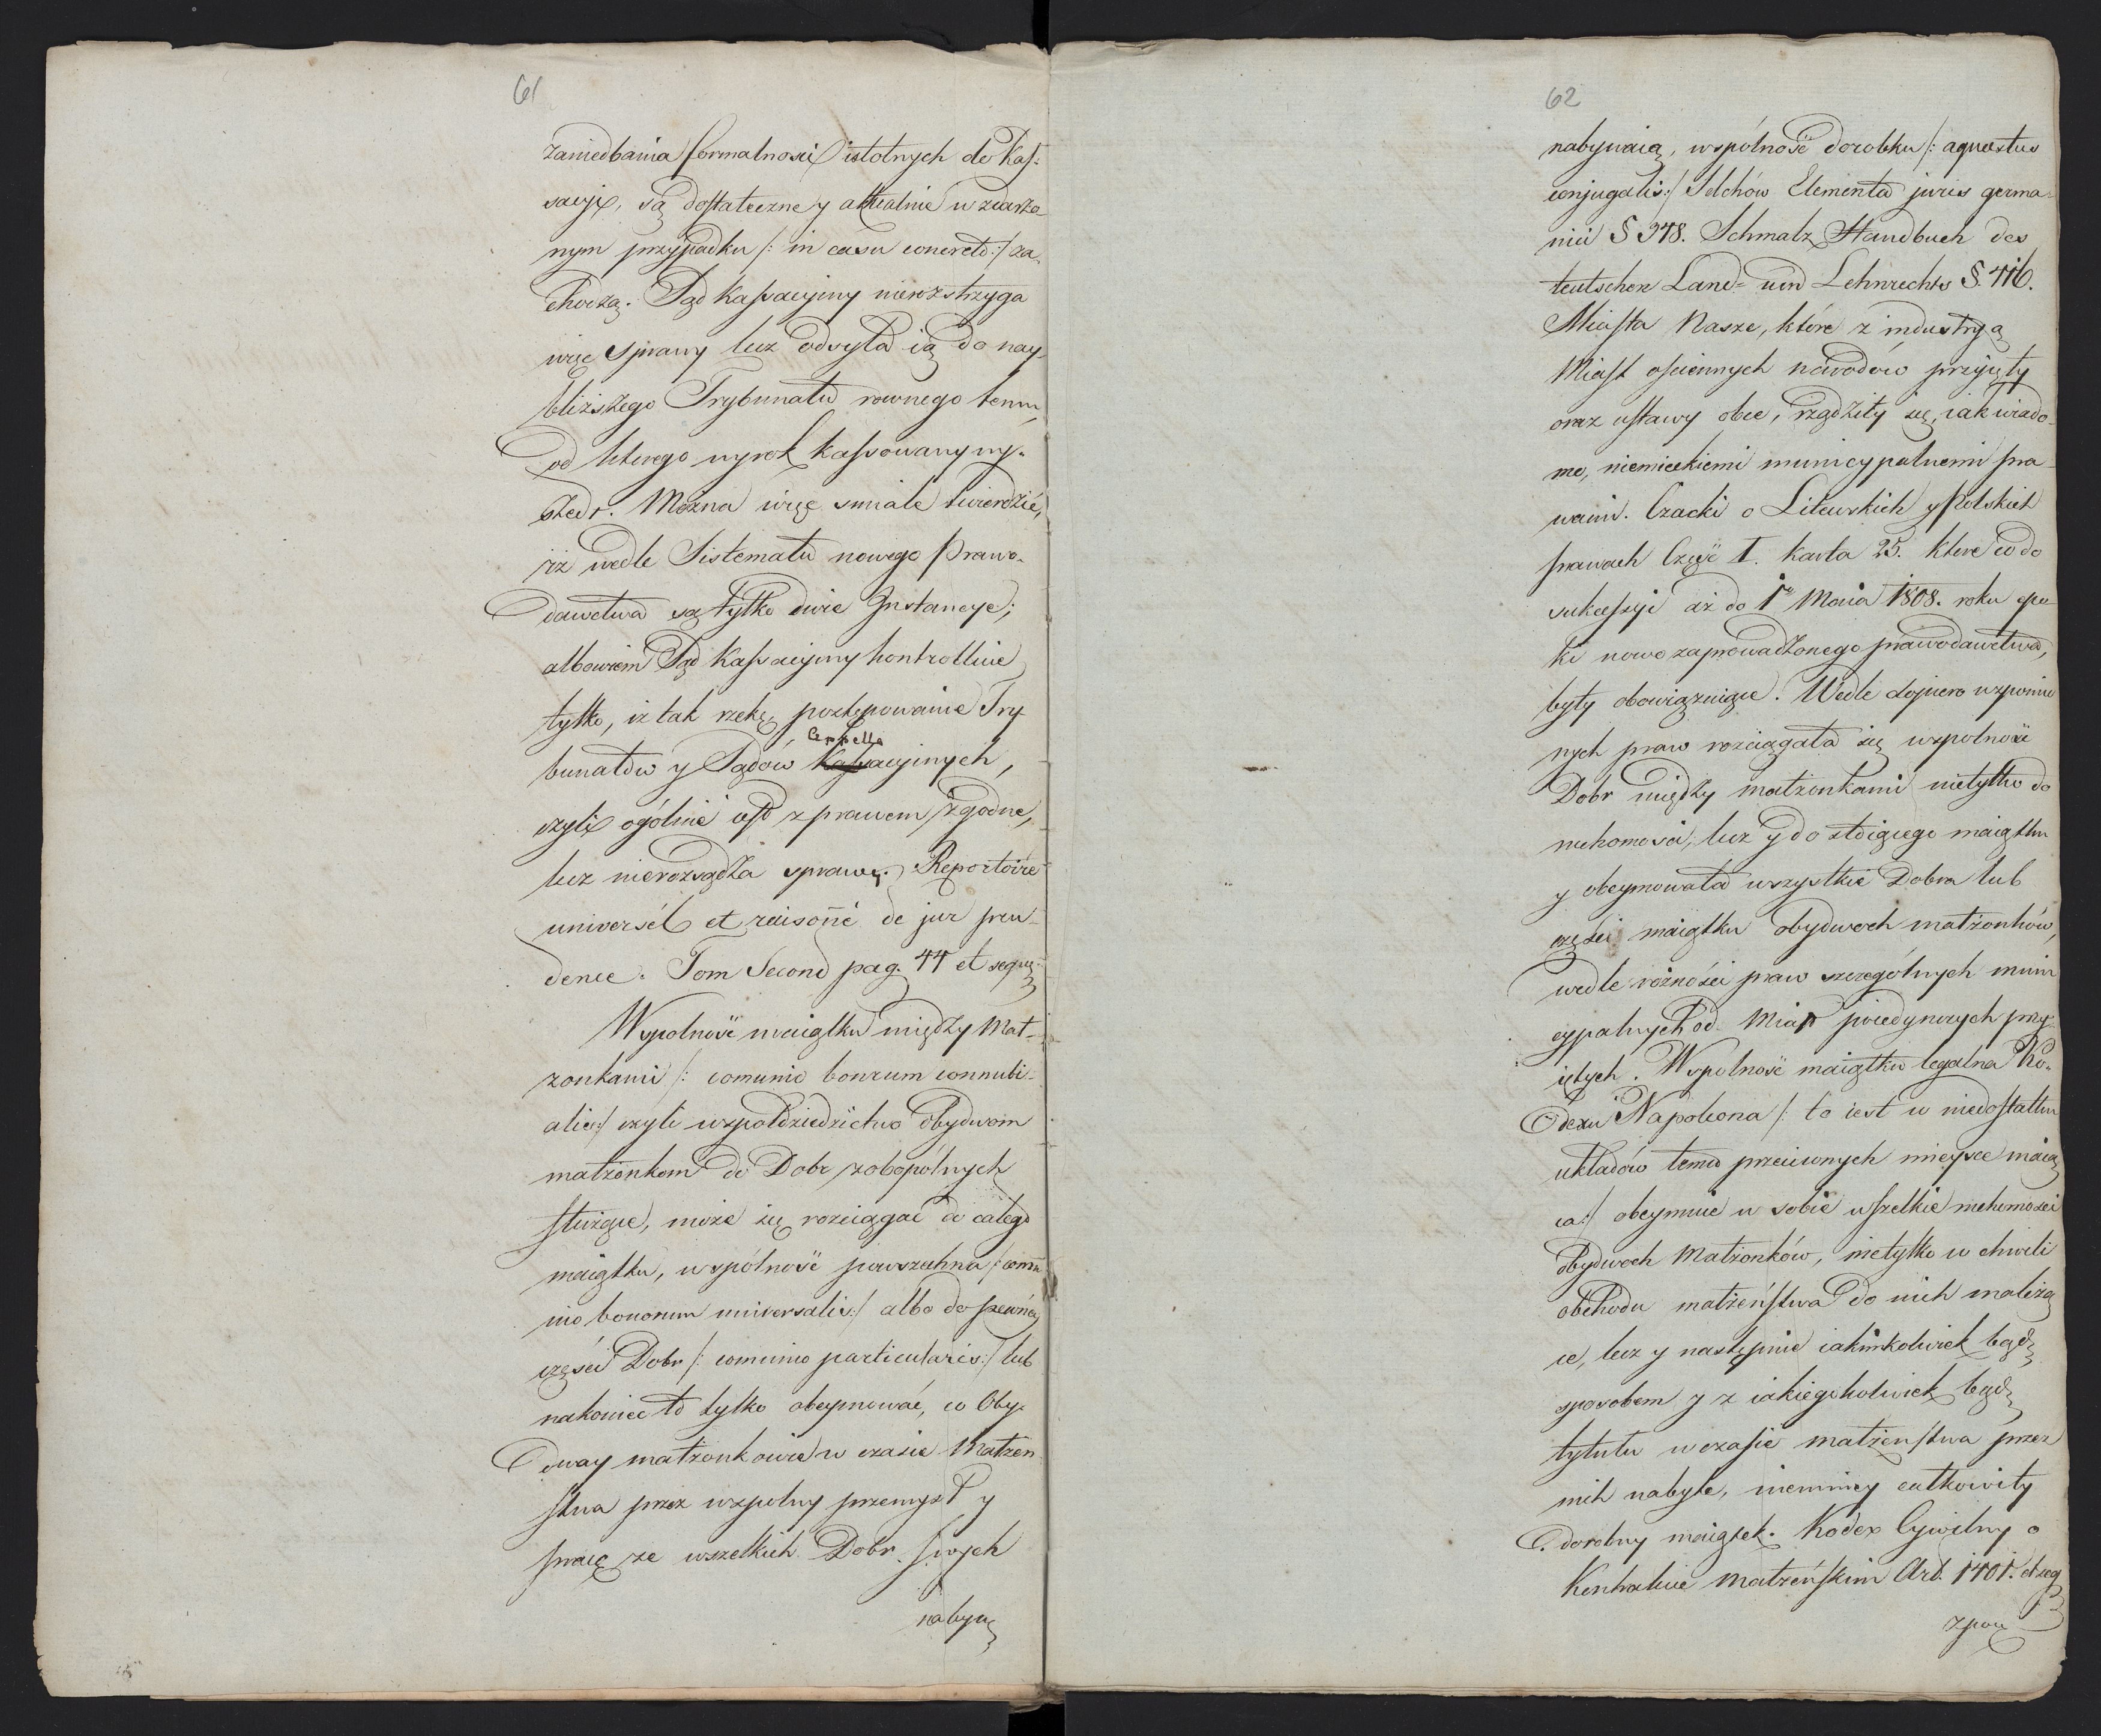 61
zaniedbania formalności istotnych do Kas=
sacyi, są dostateczne y aktualnie w zdarzo-
nym przypadku /: in casu concreto :/ za-
chodzą. Sąd Kassacyiny nierozstrzyga
więc sprawy lecz odsyła ią do nay-
bliższego Trybunału rownego temu,
od którego wyrok kassowany wy-
szedł. Można więc smiale twierdzić,
iż wedle Sistematu nowego Prawo-
dawctwa są tylko dwie Instancye;
albowiem Sąd Kassacyiny kontrolluie
tylko, iż tak rzekę, postępowanie Try
bunałów y Sądów Kassacyinych,
Appella
czyli ogólnie iest z prawem zgodne,
lecz nierozsądza sprawę. Repertoire
universél et raisoñé de jur pru-
dence. Tom Second pag. 44 et sequ.
Wspolność maiątku między Mał-
żonkami /: comunio bonrum connubi-
alis :/ czyli wspołdziedzictwo Obydwom
małżonkom do Dobr zobopólnych
służące, może się rozciągać do całego
maiątku, wspólność powszechna /: comu
nio bonorum universalis :/ albo do pewnéy
części Dobr /: comunio particularis :/ lub
nakoniec to tylko obeymować, co Oby-
dway małżonkowie w czasie Małżeń
stwa przez wspolny przemysł y
pracę ze wszelkich Dobr swych
nabywa
62
nabywaią, wspólność dorobku /: aquestus
conjugalis :/ Selchów Elementa juris germa-
nici § 348. Schmalz Handbuch des
teutschen Land= und Lehnrechts §. 416.
Miasta Nasze, które z industryą
Miast ościennych narodów przyięły
oraz ustawy obce, rządziły się, iak wiado-
mo, niemieckiemi municypalnemi pra-
wami. Czacki o Litewskich y Polskich
prawach Część I. karta 25. które co do
sukcessyi aż do 1o Maia 1808. roku epo
ki nowo zaprowadzonego prawodawctwa,
były obowiązuiące. Wedle dopiero wspomnio
nych praw rozciągała się wspolność
Dobr między małżonkami nietylko do
ruchomości, lecz y do stoiącego maiątku
y obeymowała wszystkie Dobra lub
części maiątku obydwoch małżonków,
wedle różności praw szczególnych muni
cypalnych od Miast poiedynczych przy-
iętych. Wspolność maiątku legalna Ko-
dexu Napoleona /: to iest w niedostatku
układów temu przeciwnych mieysce maią
ca :/ obeymuie w sobie wszelkie ruchomości
Obydwoch Małżonków, nietylko w chwili
obchodu małżeństwa do nich należą
ce, lecz y następnie iakimkolwiek bądź
sposobem y z iakiegokolwiek bądź
tytułu w czasie małżeństwa przez
nich nabyte, niemniey całkowity
dorobny maiątek. Kodex Cywilny o
Kontrakcie Małżeńskim Art. 1401. et seq